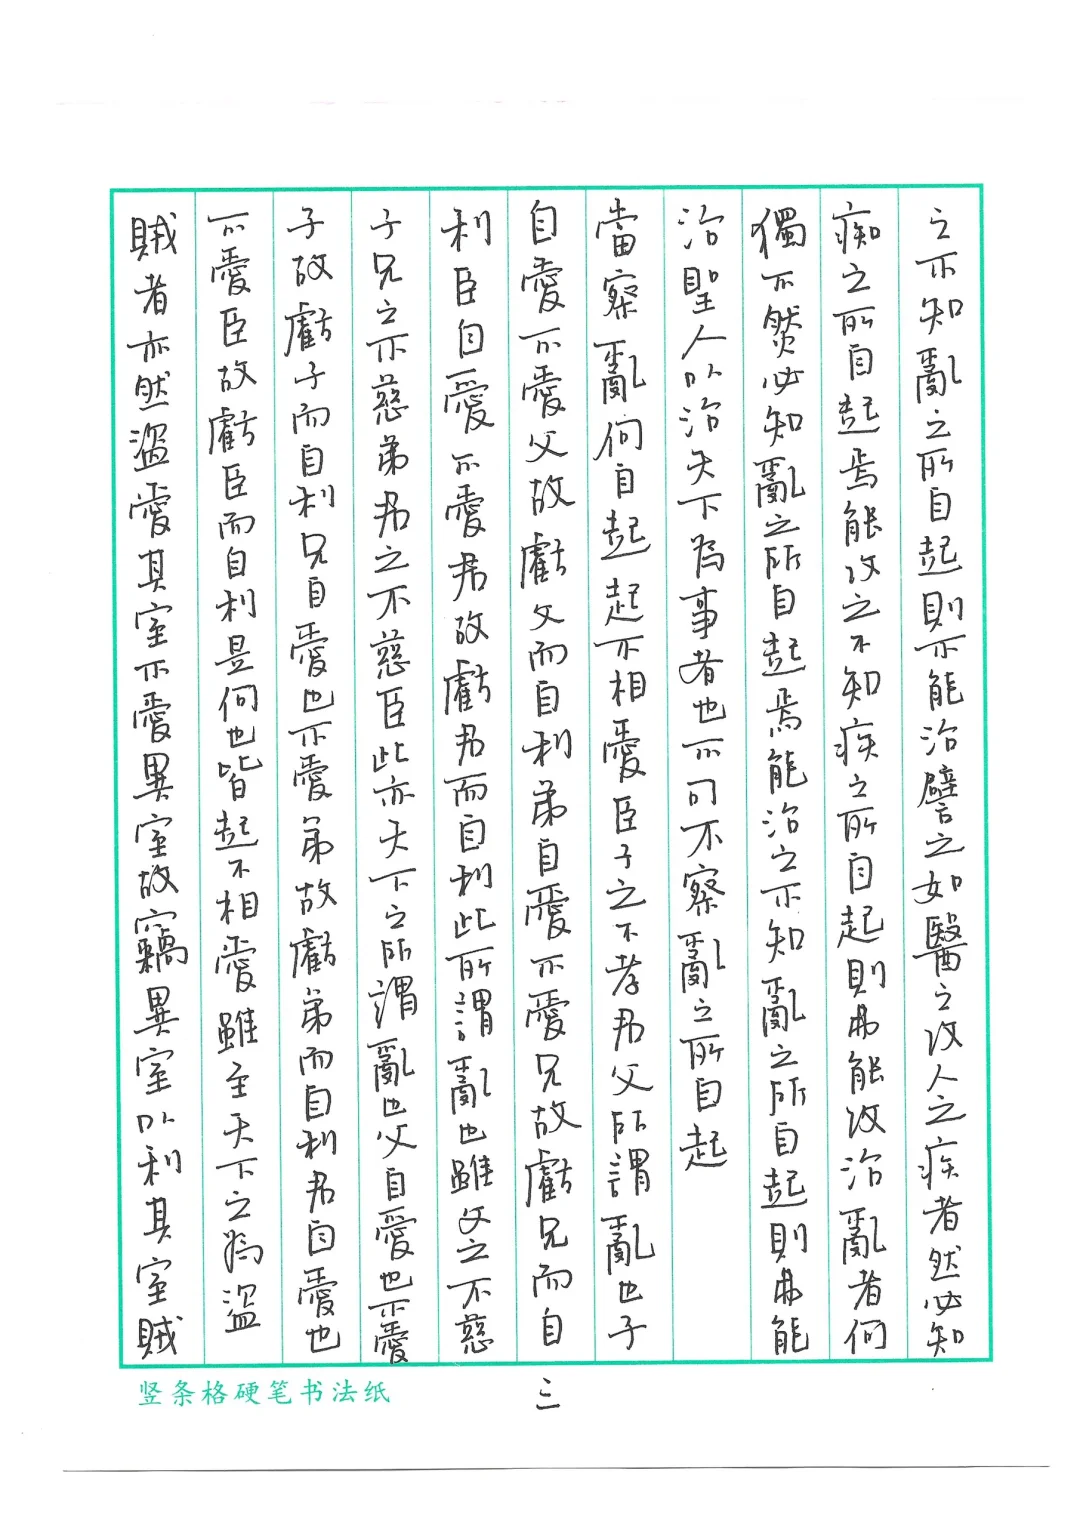 之不知亂之所自起則不能治譬之如醫之攻人之疾者然必知
痴之所自起焉能攻之不知疾之所自起則弗能攻治亂者何
獨不然必知亂之所自起焉能治之不知亂之所自起則弗能
治聖人以治天下為事者也不可不察亂之所自起
當察亂何自起起不相愛臣子之不孝君父所謂亂也子
自愛不愛父故虧父而自利弟自愛不愛兄故虧兄而自
利臣自愛不愛君故虧君而自利此所謂亂也雖父之不慈
子兄之不慈弟君之不慈臣此亦天下之所謂亂也父自愛也不愛
子故虧子而自利兄自愛也不愛弟故虧弟而自利君自愛也
不愛臣故虧臣而自利是何也皆起不相愛雖至天下之為盜
賊者亦然盜愛其室不愛異室故竊異室以利其室賊
竖条格硬笔书法纸
三